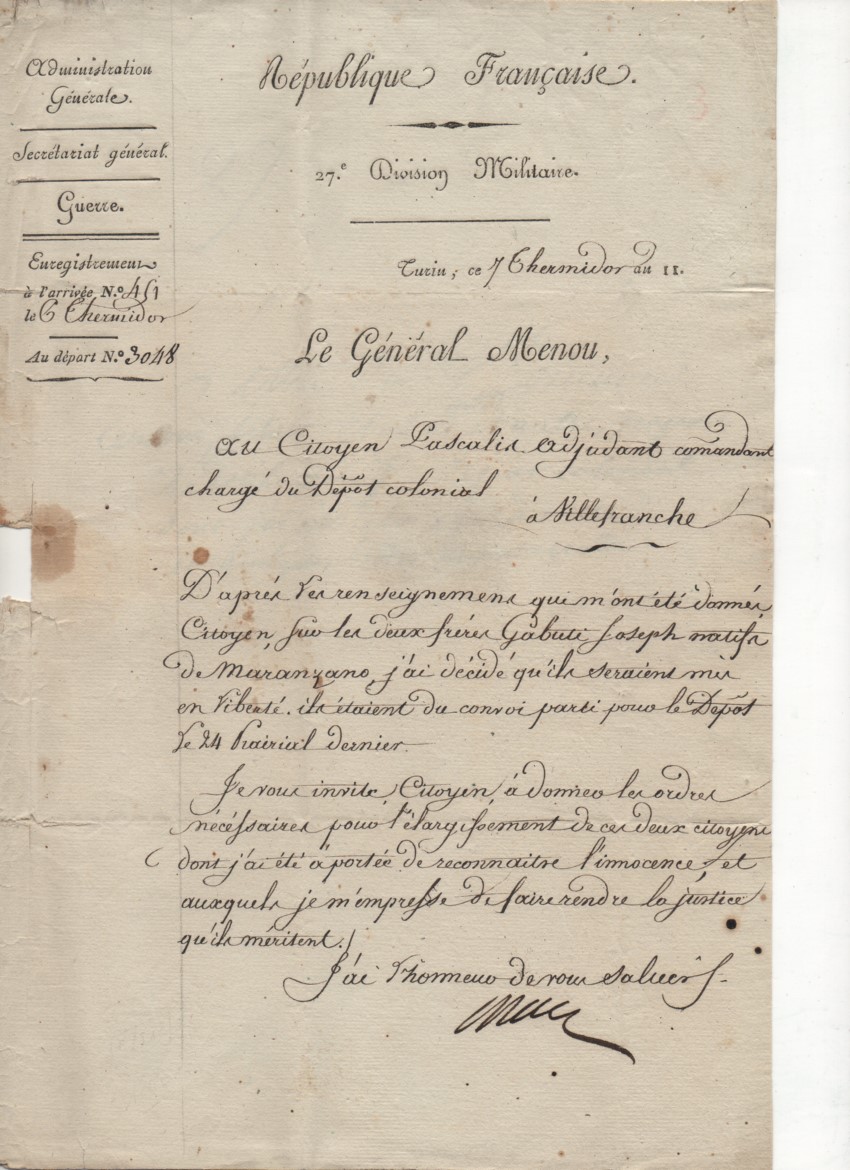 Administration
Générale.
Secrétariat général.
Guerre.
Enregistrement
à l'arrivée N.º 451
le 6 Thermidor
Au départ N.º 3048
République Française.
27.e Division Militaire.
Turin, ce 7 Thermidor an 11.
Le Général Menou,
au Citoyen Pascalis adjudant comandant
chargé du Dépôt colonial
à Villefranche
D'après les renseignemens qui m'ont été donnés,
Citoyen, sur les deux frères Gabuti Joseph natifs
de Maranzano, j'ai décidé qu'ils seraient mis
en liberté. ils étaient du convoi parti pour le Dépôt
le 24 Prairial dernier.
Je vous invite Citoyen à donner les ordres
nécessaires pour l'élargissement de ces deux citoyens
dont j'ai été à portée de reconnaitre l'innocence, et
auxquels je m'empresse de faire rendre la justice
qu'ils méritent.
J'ai l'honneur de vous saluer
Menou